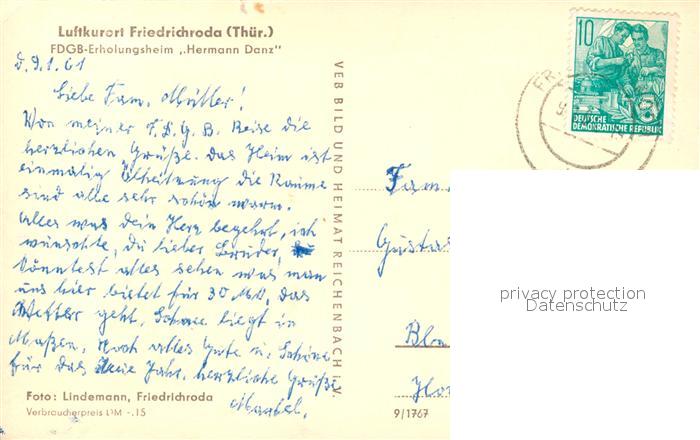 Luftkurort Friedrichroda (Thür.)
FDGB-Erholungsheim „Hermann Danz"
d. 9.1.61
Liebe Fam. Müller!
Von meiner F.D.G.B. Reise die
herzlichen Grüße. Das Heim ist
einmalig Ölheitzung die Räume
sind alle sehr schön warm.
Alles was dein Herz begehrt, ich
wünschte, du lieber Bruder,
könntest alles sehen was man
uns hier bietet für 30 M. Das
Wetter geht, Schnee liegt in
Maßen. Noch alles Gute u. Schöne
für das Neue Jahr. herzliche Grüße
Foto: Lindemann, Friedrichroda
Verbraucherpreis DM -.15
VEB BILD UND HEIMAT REICHENBACH i. V.
9/1767
10
DEUTSCHE
DEMOKRATISCHE REPUBLIK
Fam
Gustav
privacy protection
Datenschutz